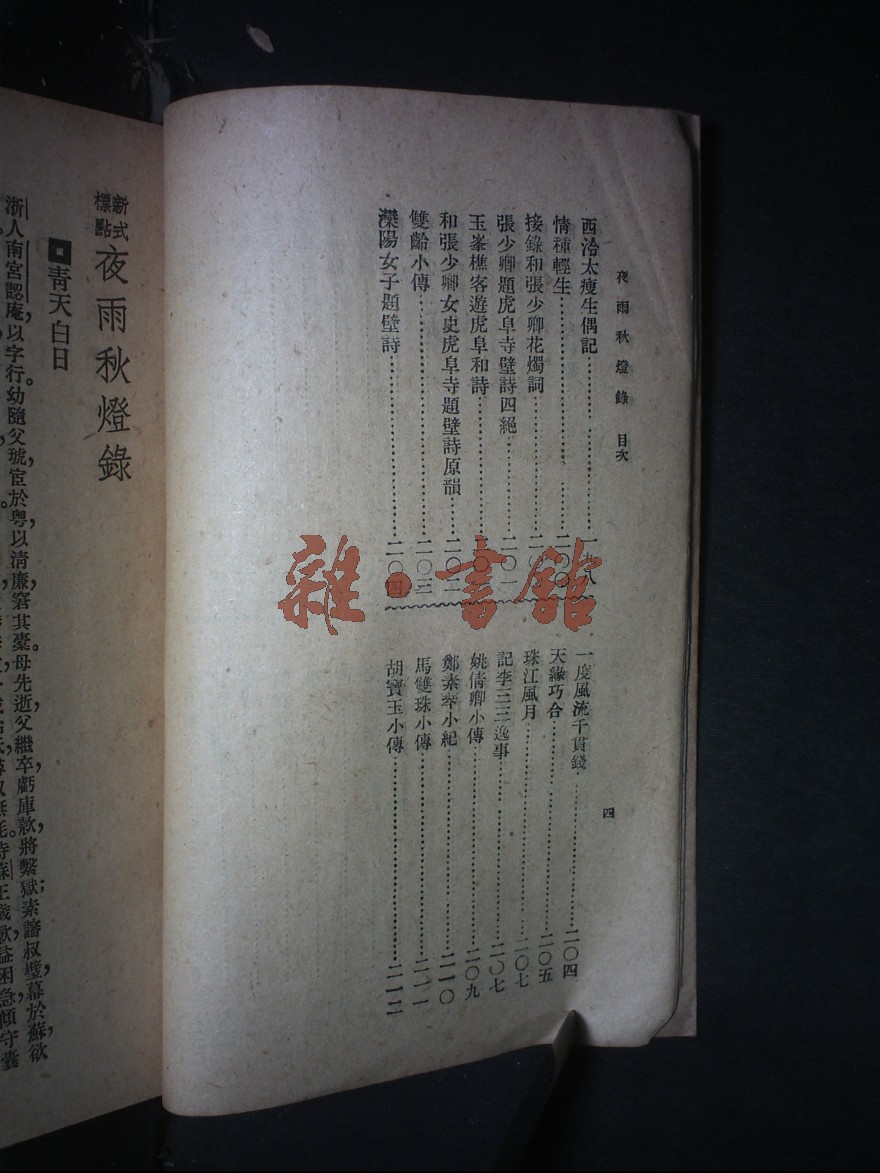 夜雨秋燈錄　目次
四
西泠太瘦生偶記……一九八
情種輕生……二〇〇
接錄和張少卿花燭詞……二〇
張少卿題虎阜寺壁詩四絕……二〇一
玉峯樵客遊虎阜和詩……二〇
和張少卿女史虎阜寺題壁詩原韻……二〇二
雙齡小傳……二〇三
灤陽女子題壁詩……二〇四
一度風流千貫錢……二〇四
天緣巧合……二〇五
珠江風月……二〇七
記李三三逸事……二〇七
姚倩卿小傳……二〇九
鄭素琴小紀……二一〇
馬雙珠小傳……二一一
胡寶玉小傳……二一二
雜·書館
新式標點
夜雨秋燈錄
青天白日
浙人南宮認庵，以字行。幼隨父琥宦於粵，以清廉窘其橐。母先逝，父繼卒，虧庫款，將繫獄；素諳叔璧，幕於蘇，欲